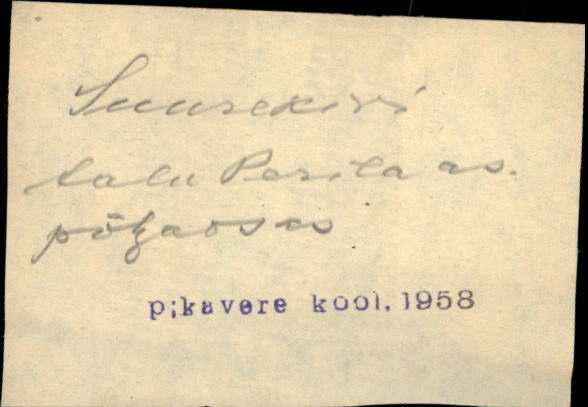 Suurekivi
talu Perila as.
põhjaosas
pikavere kool.1958